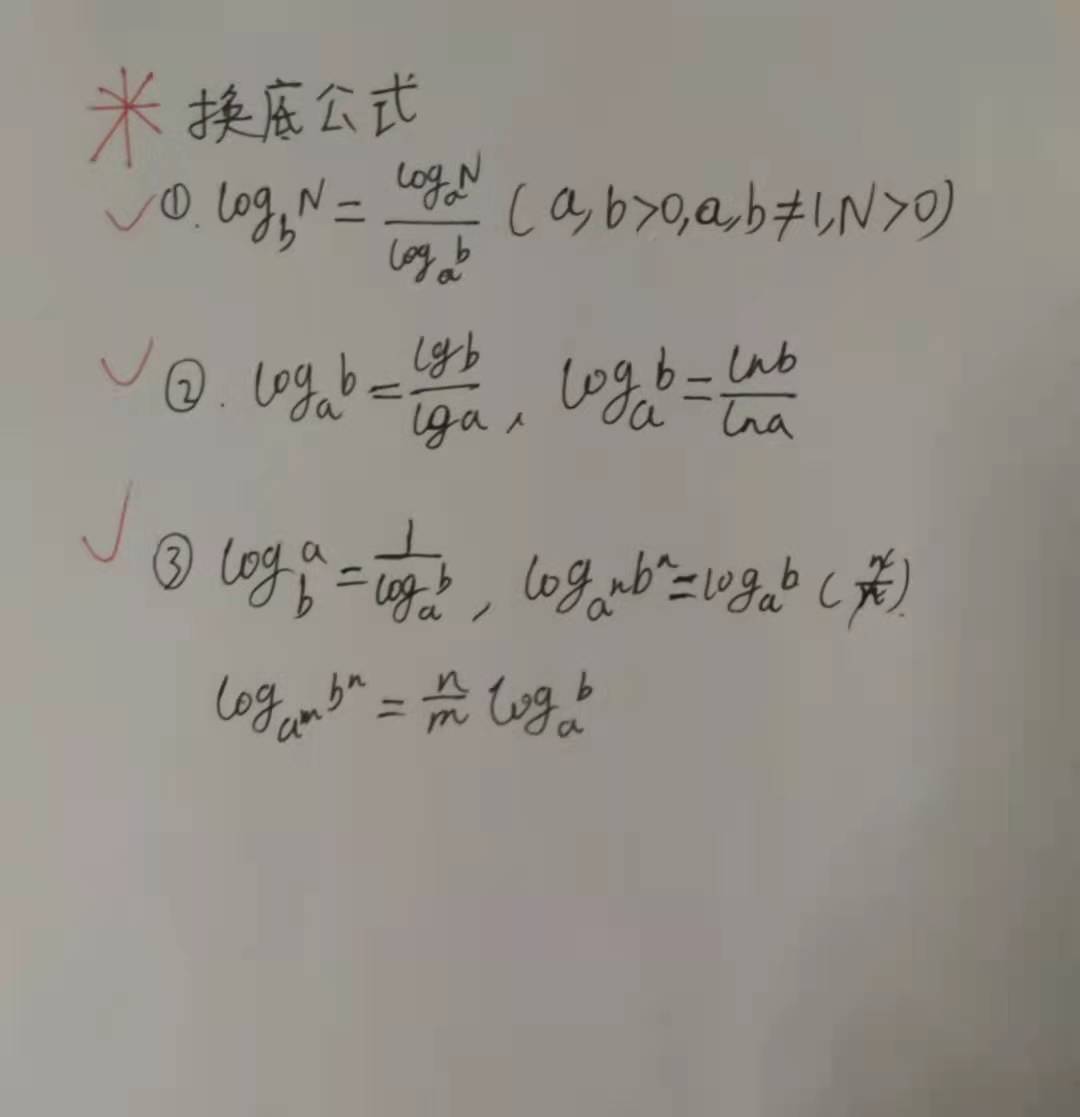 * 换底公式
①. log_b N = \frac{log_a N}{log_a b} (a, b>0, a, b≠1, N>0)
②. log_a b = \frac{lg b}{lg a}, log_a b = \frac{ln b}{ln a}
③ log_b a = \frac{1}{log_a b}, log_{a^n} b^n = log_a b (\frac{n}{n}).
log_{a^m} b^n = \frac{n}{m} log_a b